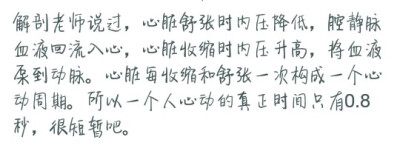 解剖老师说过，心脏舒张时内压降低，腔静脉
血液回流入心，心脏收缩时内压升高，将血液
泵到动脉。心脏每收缩和舒张一次构成一个心
动周期。所以一个人心动的真正时间只有0.8
秒，很短暂吧。